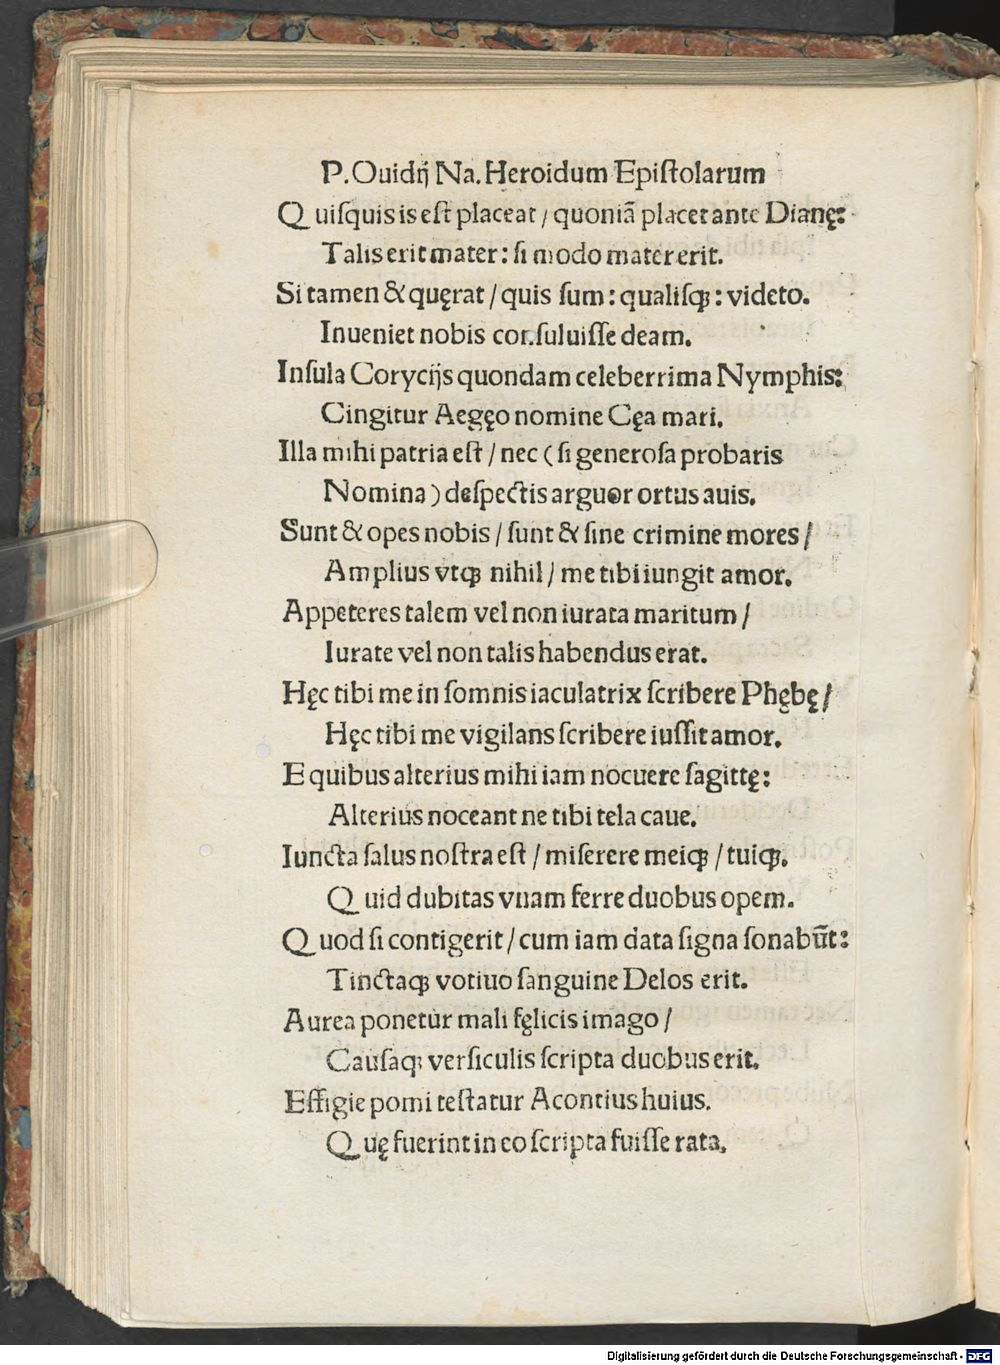 P.Ouidij Na. Heroidum Epiſtolarum
Q uiſquis is eſt placeat / quoniã placet ante Dianę:
Talis erit mater: ſi modo mater erit.
Si tamen & quęrat / quis ſum: qualiſqꝫ: videto.
Inueniet nobis conſuluiſſe deam.
Inſula Corycijs quondam celeberrima Nymphis:
Cingitur Aegęo nomine Cęa mari.
Illa mihi patria eſt / nec ( ſi generoſa probaris
Nomina ) deſpectis arguor ortus auis.
Sunt & opes nobis / ſunt & ſine crimine mores /
Amplius vtqꝫ nihil / me tibi iungit amor.
Appeteres talem vel non iurata maritum /
Iurate vel non talis habendus erat.
Hęc tibi me in ſomnis iaculatrix ſcribere Phębę /
Hęc tibi me vigilans ſcribere iuſſit amor.
E quibus alterius mihi iam nocuere ſagittę:
Alterius noceant ne tibi tela caue.
Iuncta ſalus noſtra eſt / miſerere meiqꝫ / tuiqꝫ.
Q uid dubitas vnam ferre duobus opem.
Q uod ſi contigerit / cum iam data ſigna ſonabũt:
Tinctaqꝫ votiuo ſanguine Delos erit.
Aurea ponetur mali fęlicis imago /
Cauſaqꝫ verſiculis ſcripta duobus erit.
Effigie pomi teſtatur Acontius huius.
Q uę fuerint in eo ſcripta fuiſſe rata.
Digitalisierung gefördert durch die Deutsche Forschungsgemeinschaft - DFG